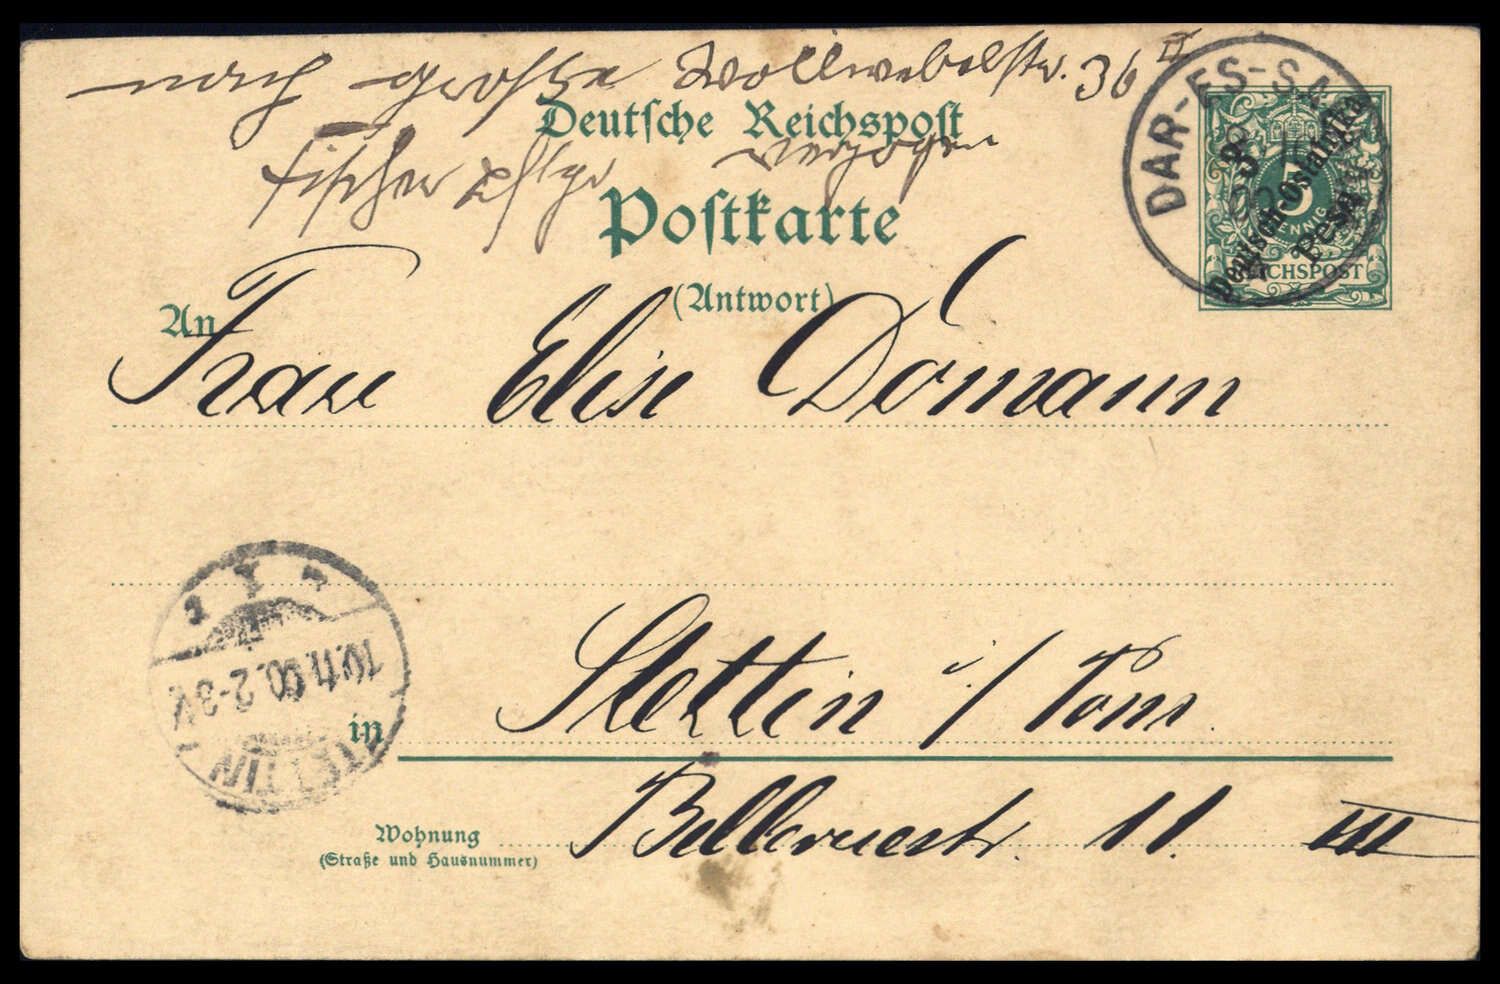 nach große Wollweberstr. 36 II
Deutsche Reichspost
verzogen
Fischer
Postkarte
(Antwort)
DAR-ES-SA
Deutsch-Ostafrika
5
PFENNIG
REICHSPOST
An
Frau Elise Domann
10.11.00. 2-3 V.
STETTIN
in
Stettin i/Pom.
Wohnung
(Straße und Hausnummer)
Bellevuestr. 11. III